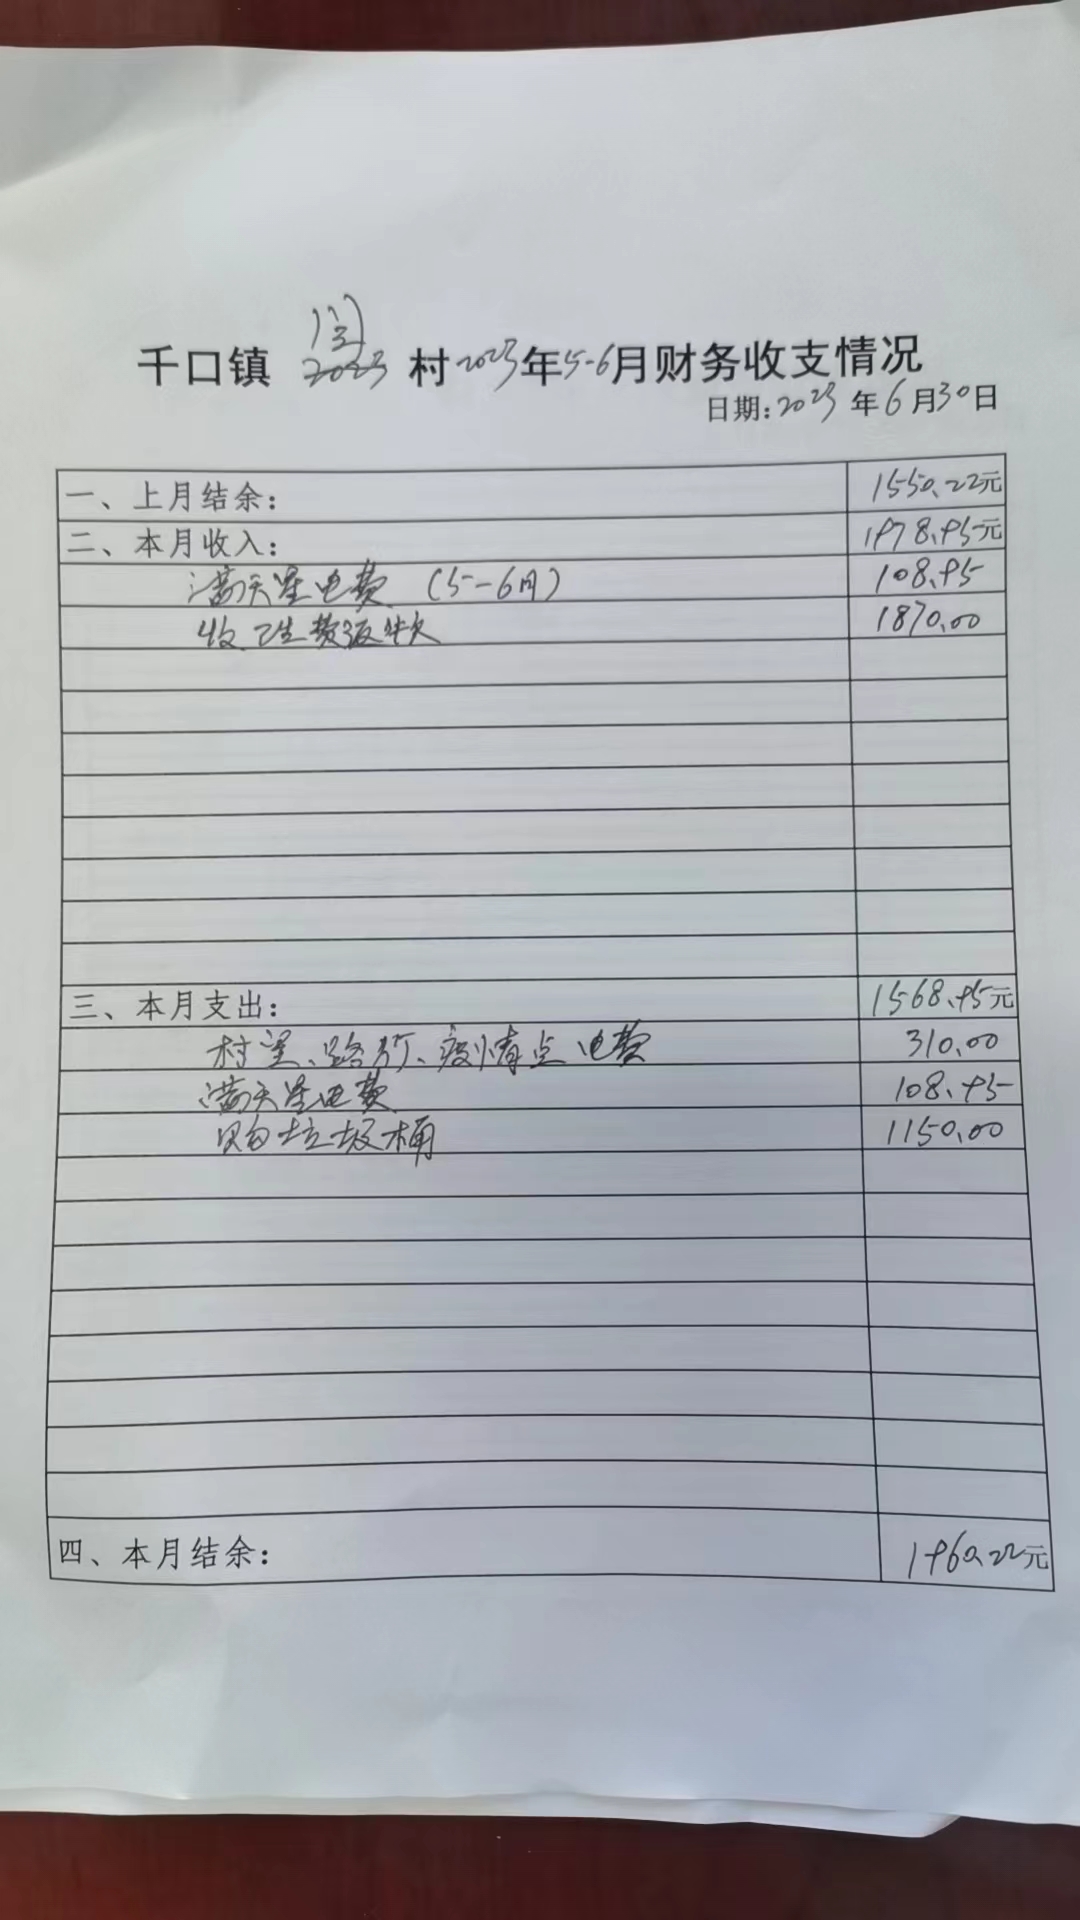 千口镇 2023 村2023年5-6月财务收支情况
日期:2023年6月30日
一、上月结余: 1550.22元
二、本月收入: 1978.95元
满天星电费 (5-6月) 108.95
收卫生费返款 1870.00
三、本月支出: 1568.95元
村室、路灯、疫情点电费 310.00
满天星电费 108.95
购垃圾桶 1150.00
四、本月结余: 1960.22元